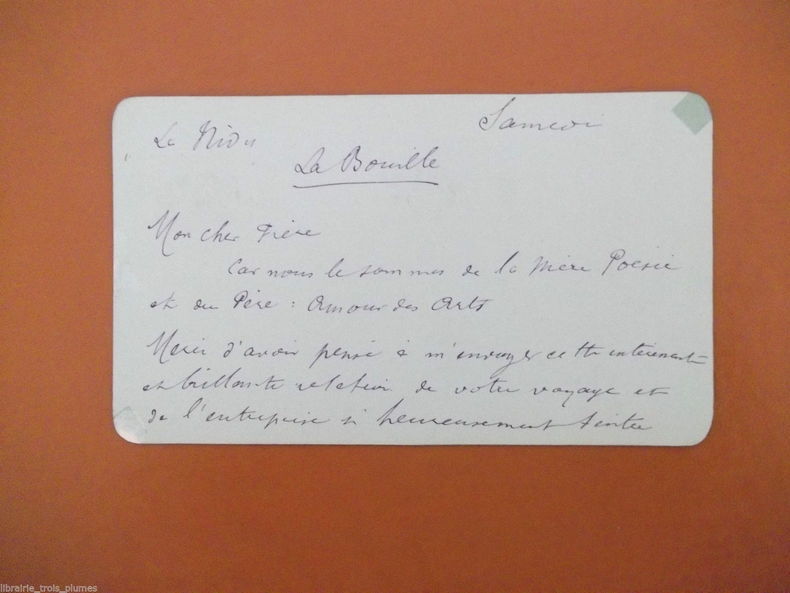 Samedi
Le Nid
La Bouille
Mon cher Frère
Car nous le sommes de la Mère Poésie
et du Père : Amour des Arts
Merci d'avoir pensé à m'envoyer cette intéressante
et brillante relation de votre voyage et
de l'entreprise si heureusement tentée
librairie_trois_plumes